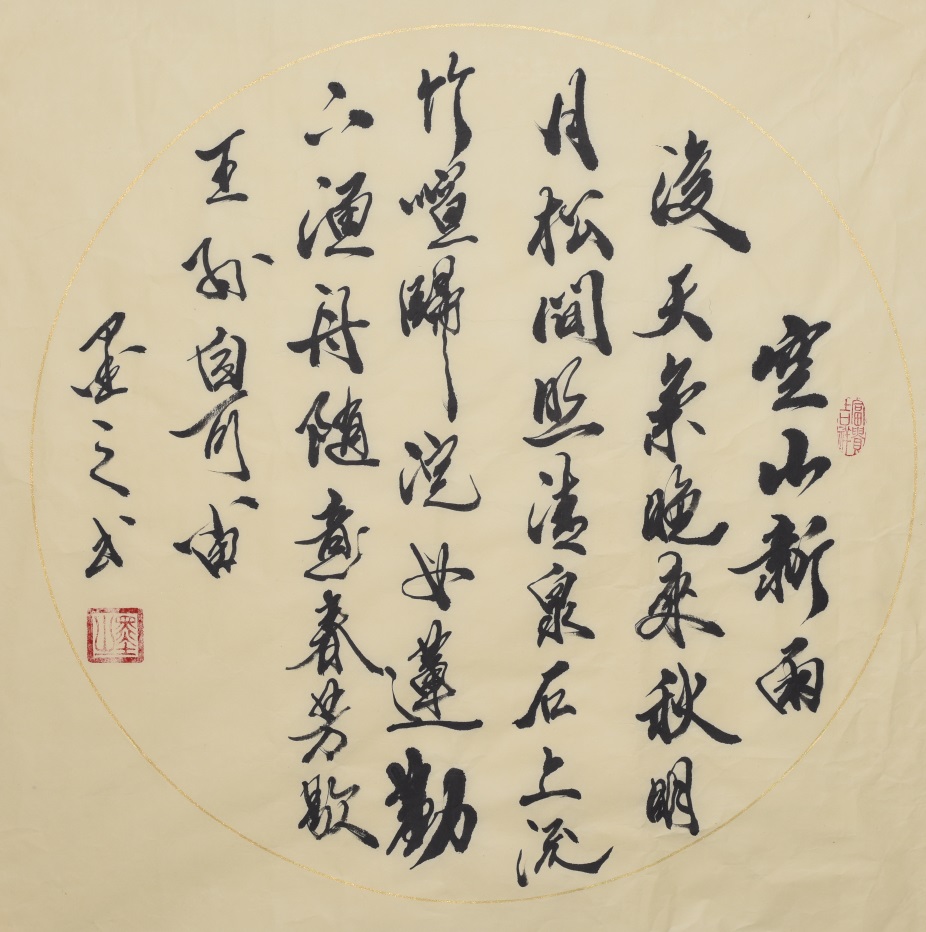 富貴吉祥
空山新雨
後天氣晚來秋明
月松間照清泉石上流
竹喧歸浣女蓮動
下漁舟隨意春芳歇
王孫自可留
墨之书
墨之